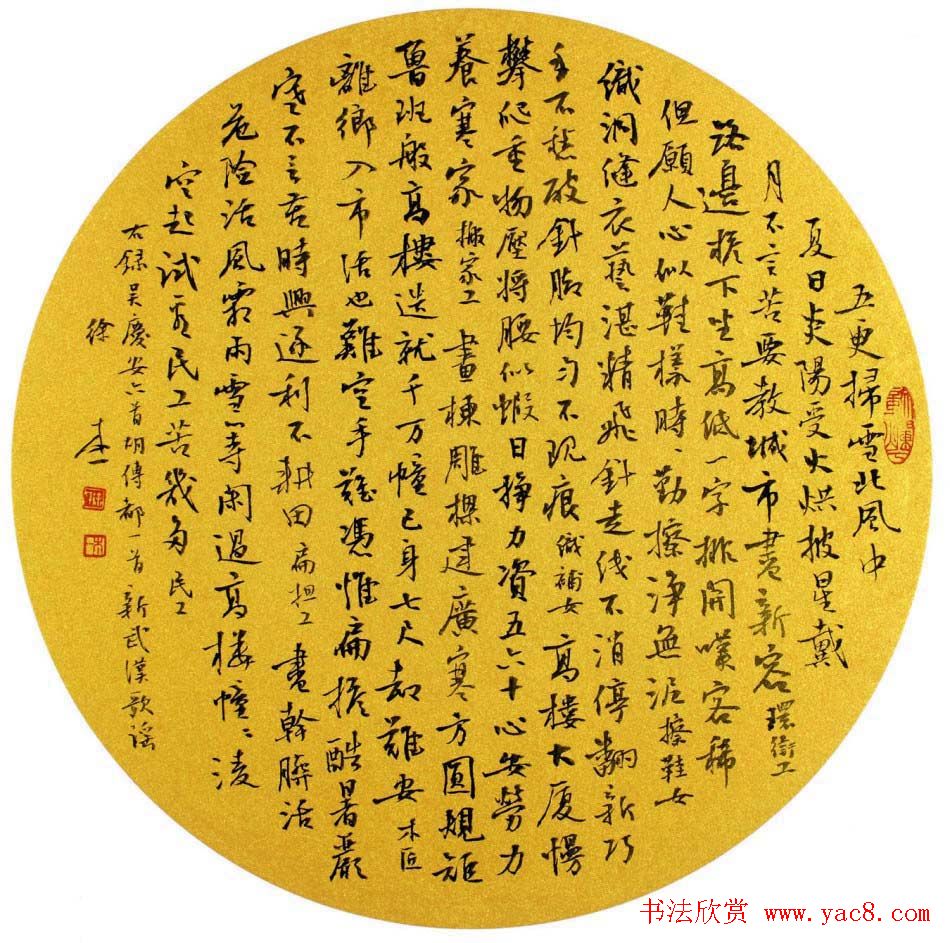 五更掃雪北風中
夏日炎陽受火烘披星戴
月不言苦要教城市盡新容環衛工
路邊檐下坐高低一字排開嘆客稀
但願人心似鞋樣時〻勤擦淨無泥擦鞋女
織洞縫衣藝湛精飛針走线不消停翻新巧
手不愁破針脚均勻不現痕織補女高樓大厦慢
攀爬重物壓將腰似蝦日挣力資五六十心安勞力
養寒家搬家工畫棟雕樑建廣寒方圓規矩
魯班般高樓造就千万幢己身七尺却難安木匠
離鄉入市活也難空手誰憑惟扁担酷暑嚴
寒不言苦時興逐利不耕田扁担工盡幹髒活
危險活風霜雨雪等閑過高樓幢〻凌
空起試看民工苦幾多民工
右錄吳慶安六首胡傳都一首新武漢歌謡
徐
书法欣赏 www.yac8.com